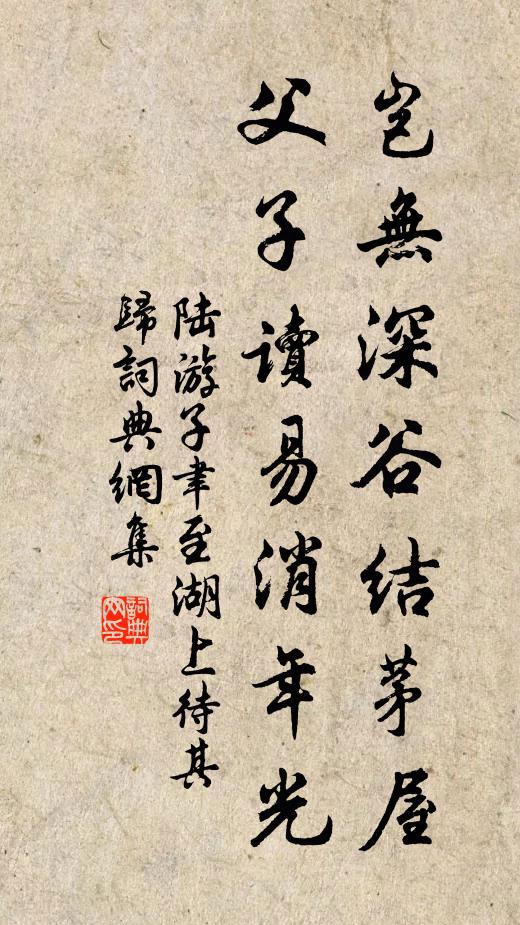 豈無深谷結茅屋
父子讀易消年光
陸游子聿至湖上待其
歸詞典網集
詞典
网印